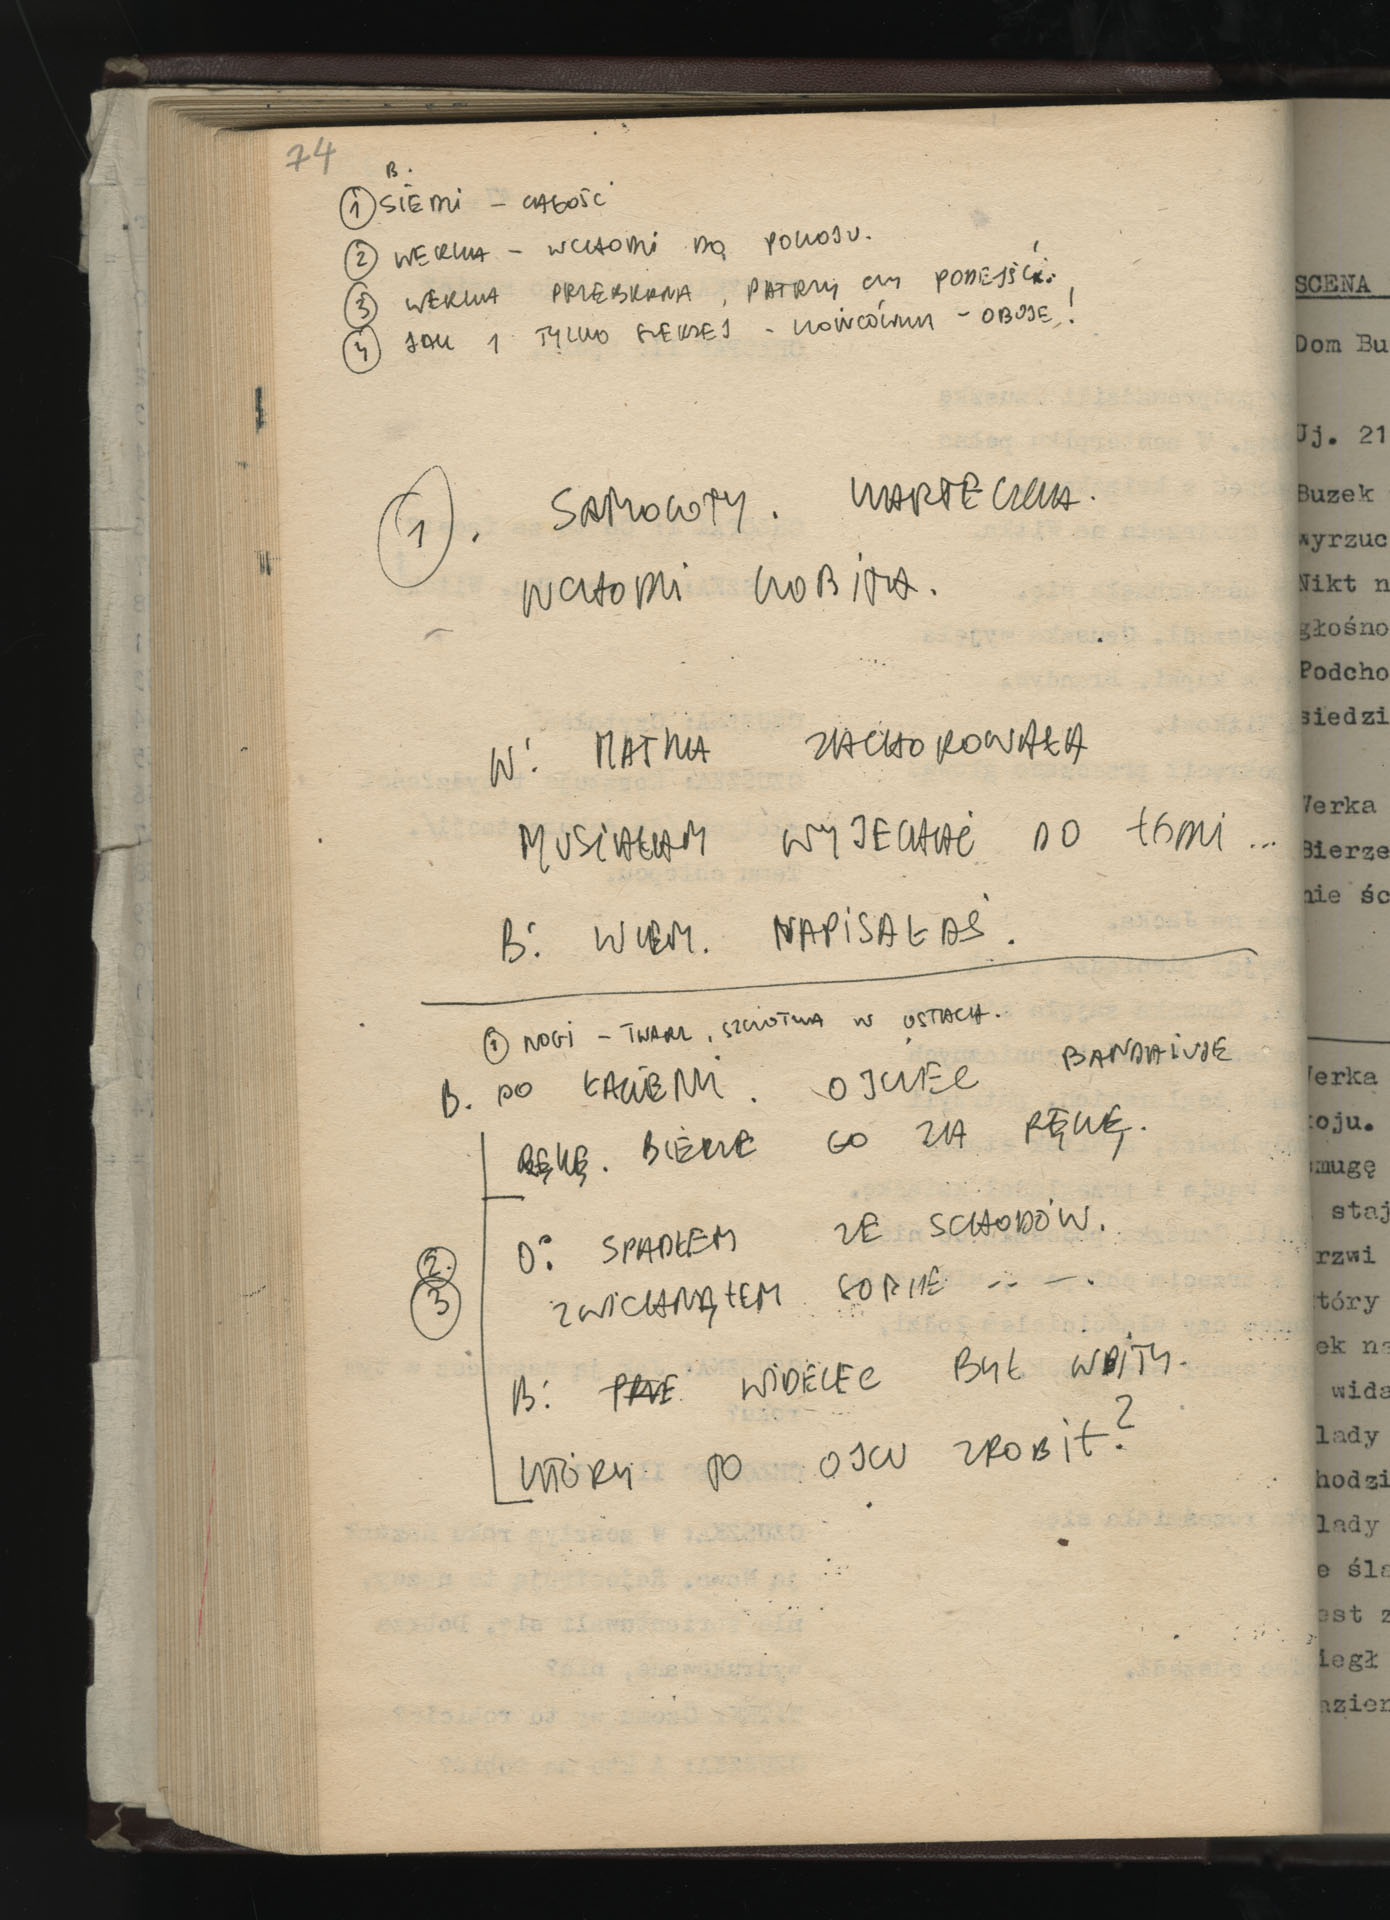 74
B.
① SIEDZI – CAŁOŚĆ
② WERKA – WCHODZI DO POKOJU.
③ WERKA PRZEBRANA, PATRZY CZY PODEJŚĆ.
④ JAK 1 TYLKO SZERZEJ – KOŃCÓWKA – OBOJE!
①. SAMOLOTY. KARTECZKA.
WCHODZI KOBIETA.
W: MATKA ZACHOROWAŁA
MUSIAŁAM WYJECHAĆ DO ŁODZI ...
B: WIEM. NAPISAŁAŚ.
① NOGI – TWARZ, SZCZOTKA W USTACH.
B. DO ŁAZIENKI. OJCIEC BANDAŻUJE
RĘKĘ. BIERZE GO ZA RĘKĘ.
O: SPADŁEM ZE SCHODÓW.
2. ZWICHNĄŁEM SOBIE -- --.
3
B: WIDELEC BYŁ WBITY.
KTÓRY TO OJCU ZROBIŁ?
SCENA
Dom Bu
Uj. 21
Buzek
wyrzuc
Nikt n
głośno
Podcho
siedzi
Verka
Bierze
nie śc
Verka
oju.
smugę
staj
rzwi
tóry
ek na
wida
lady
hodzi
lady
e śla
est z
iegł
azien